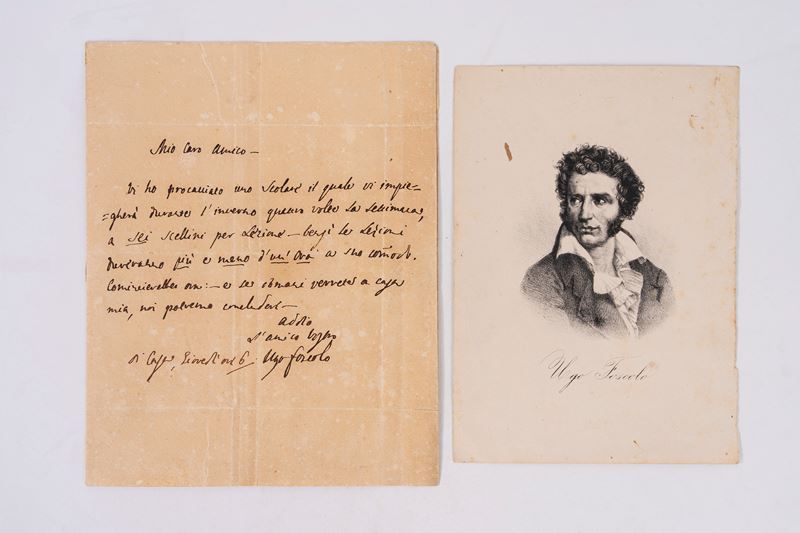 Mio Caro Amico –
Vi ho procacciato uno Scolare il quale vi impie=
=gherà durante l'inverno quattro volte la Settimana,
a sei scellini per Lezione – bensì le Lezioni
dureranno più e meno d'un' Ora a suo comodo.
Comincierebbe ora: – e se domani verrete a casa
mia, noi potremo concludere –
addio
L'amico vostro
Ugo Foscolo
di Casa, Giovedì ore 6.
Ugo Foscolo